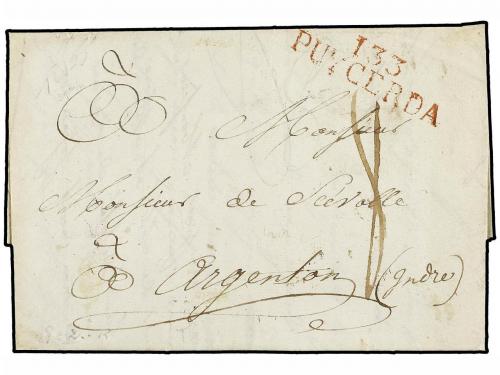 133
PUYCERDA
à Monsieur
Monsieur de Scévolle
à Argenton (Indre)